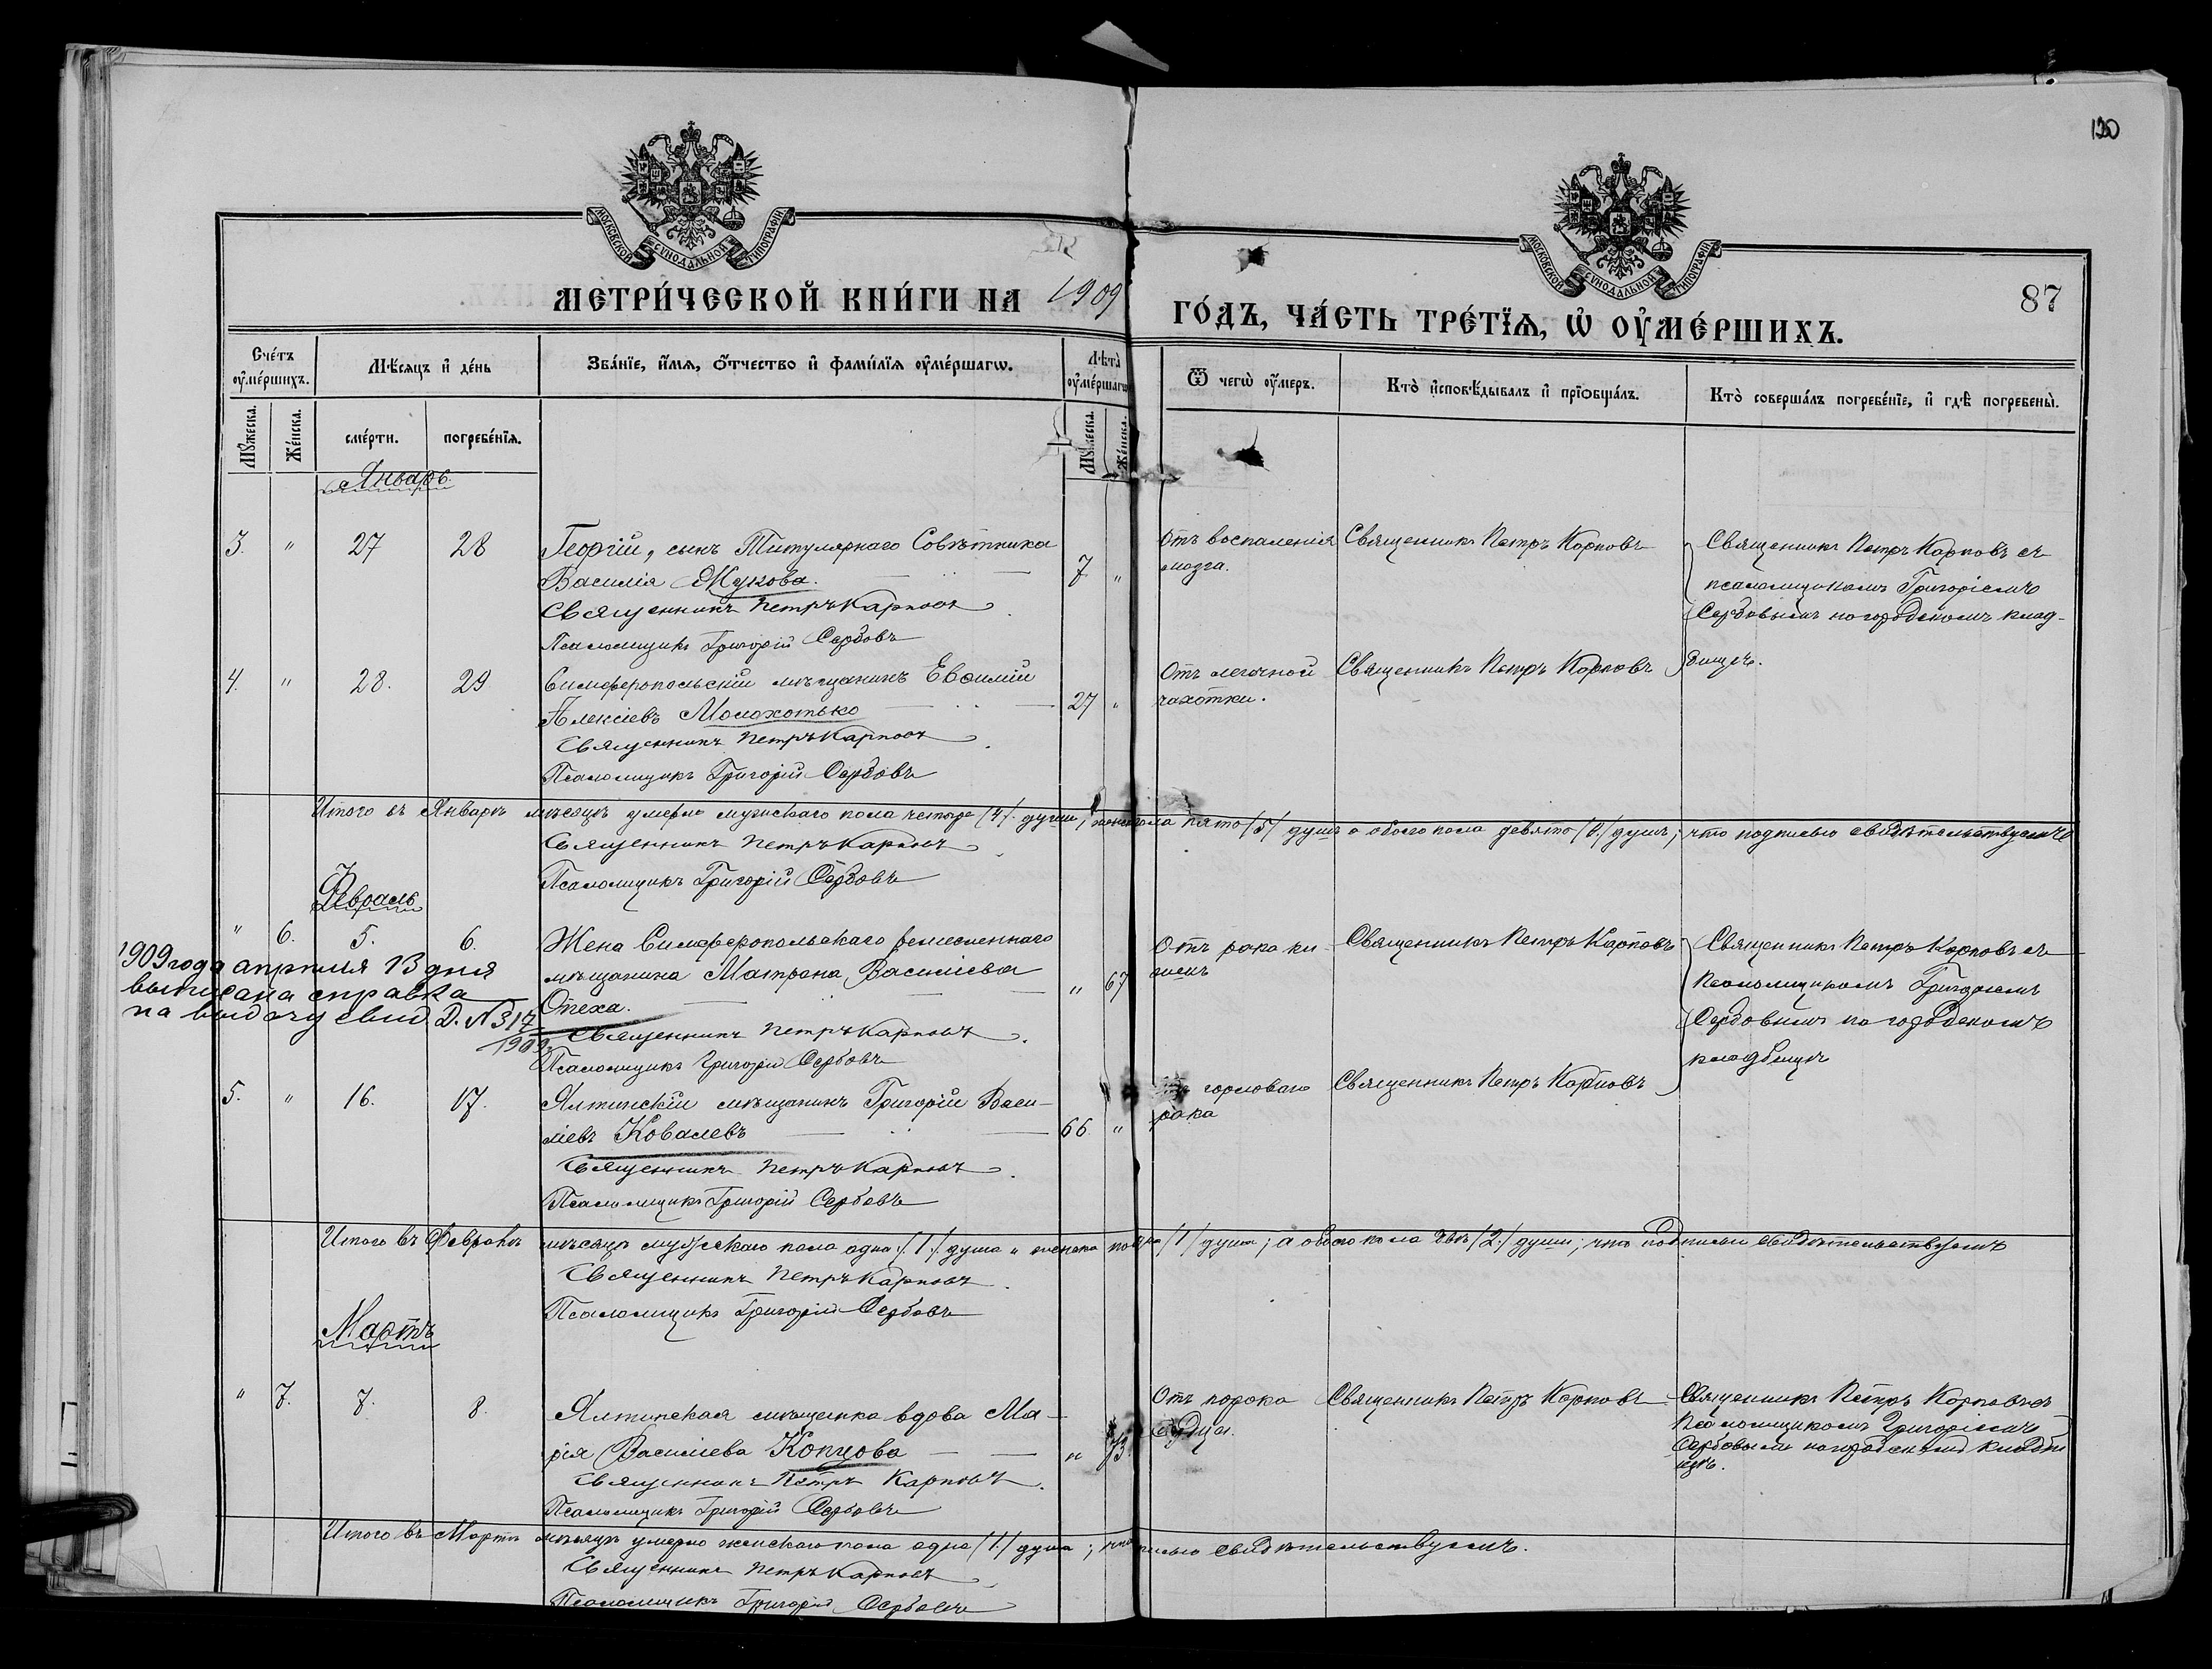 120
МОСКОВСКОЙ СѴНОДАЛЬНОЙ ТИПОГРАФІИ
МОСКОВСКОЙ СѴНОДАЛЬНОЙ ТИПОГРАФІИ
МЕТРИ́ЧЕСКОЙ КНИ́ГИ НА 1909
ГО́ДЪ, ЧА́СТЬ ТРЕ́ТЇѦ, Ѡ҆ ОУ҆МЕ́РШИХЪ.
87
Сче́тъ оу҆ме́ршихъ.
Мѣ́сяцъ и҆ де́нь
Зва́нїе, и҆́мѧ, ѻ҆́тчество и҆ фами́лїѧ оу҆ме́ршагѡ.
Лѣ̀та оу҆ме́ршагѡ
Ѿ чегѡ̀ оу҆́меръ.
Кто̀ и҆сповѣ́дывалъ и҆ прїѻбща́лъ.
Кто̀ соверша́лъ погребе́нїе, и҆ гдѣ̀ погребены̀.
Мꙋ́жеска.
Же́нска.
сме́рти.
погребе́нїѧ.
Мꙋ́жеска.
Же́нска.
Январь.
3. " 27 28 Георгій, сынъ Титулярнаго Совѣтника
Василія Жукова. 7 "
Священникъ Петръ Карповъ
Псаломщикъ Григорій Сербовъ
Отъ воспаленія
мозга.
Священникъ Петръ Карповъ
Священникъ Петръ Карповъ съ
псаломщикомъ Григоріемъ
Сербовымъ на городскомъ клад-
бищѣ.
4. " 28. 29 Симферопольскій мѣщанинъ Евѳимій
Алексіевъ Молохотько 27 "
Священникъ Петръ Карповъ
Псаломщикъ Григорій Сербовъ
Отъ легочной
чахотки.
Священникъ Петръ Карповъ
Итого въ Январѣ мѣсяцѣ умерло мужскаго пола четыре /4/ души, пола пять /5/ душъ а обоего пола девять душъ; что подписью свидѣтельствуемъ
Священникъ Петръ Карповъ
Псаломщикъ Григорій Сербовъ
Февраль
" 6. 5. 6. Жена Симферопольскаго
мѣщанина Матрона Василіева
Опеха. " 67
Священникъ Петръ Карповъ
Псаломщикъ Григорій Сербовъ
1909 года апрѣля 13 дня
выписана справка
на выдачу свид. Д. № 317
1909
Отъ рака ки-
шекъ
Священникъ Петръ Карповъ
Священникъ Петръ Карповъ съ
Псаломщикомъ Григоріемъ
Сербовымъ на городскомъ
кладбищѣ
5. " 16. 17. Ялтинскій мѣщанинъ Григорій Васи-
ліевъ Ковалевъ 66 "
Священникъ Петръ Карповъ
Псаломщикъ Григорій Сербовъ
горловаго
рака
Священникъ Петръ Карповъ
Итого въ Февралѣ мѣсяцѣ мужскаго пола одна /1/ душа и женска /1/ душа; а обоего пола двѣ /2/ души; что подписью свидѣтельствуемъ
Священникъ Петръ Карповъ
Псаломщикъ Григорій Сербовъ
Мартъ
" 7. 7. 8. Ялтинская мѣщанка вдова Ма-
рія Василіева Копцова " 73
Священникъ Петръ Карповъ
Псаломщикъ Григорій Сербовъ
Отъ порока
сердца.
Священникъ Петръ Карповъ
Священникъ Петръ Карповъ съ
Псаломщикомъ Григоріемъ
Сербовымъ на городскомъ кладби
щѣ.
Итого въ Мартѣ мѣсяцѣ умерло женскаго пола одна /1/ душа; свидѣтельствуемъ.
Священникъ Петръ Карповъ
Псаломщикъ Григорій Сербовъ